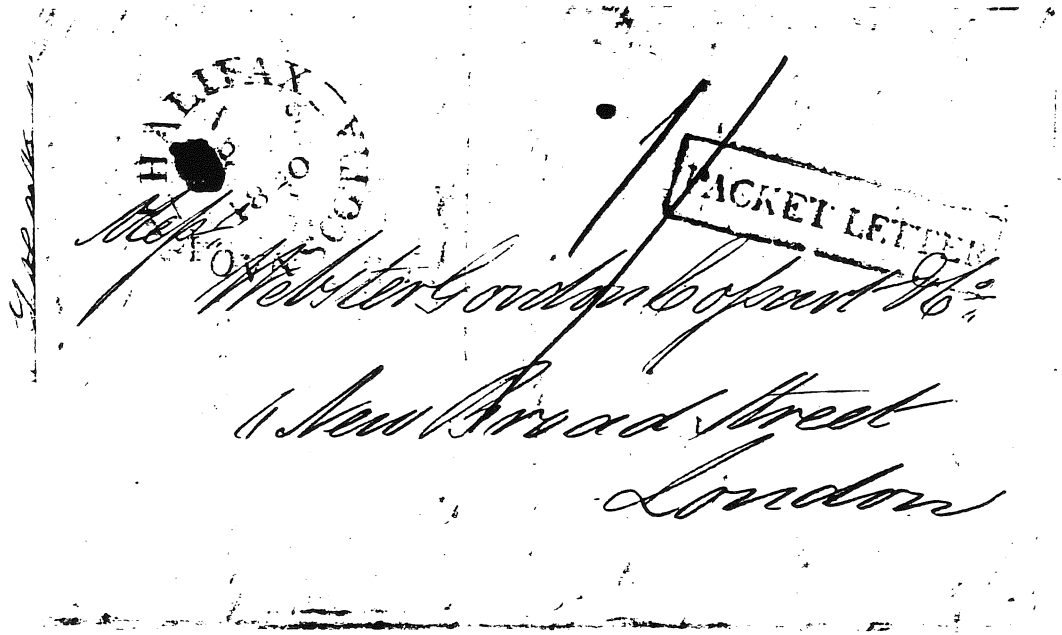 HALIFAX
NOVA SCOTIA
1840
1/
PACKET LETTER
Messrs
Webster Gordon Cossart & Co.
11 New Broad Street
London